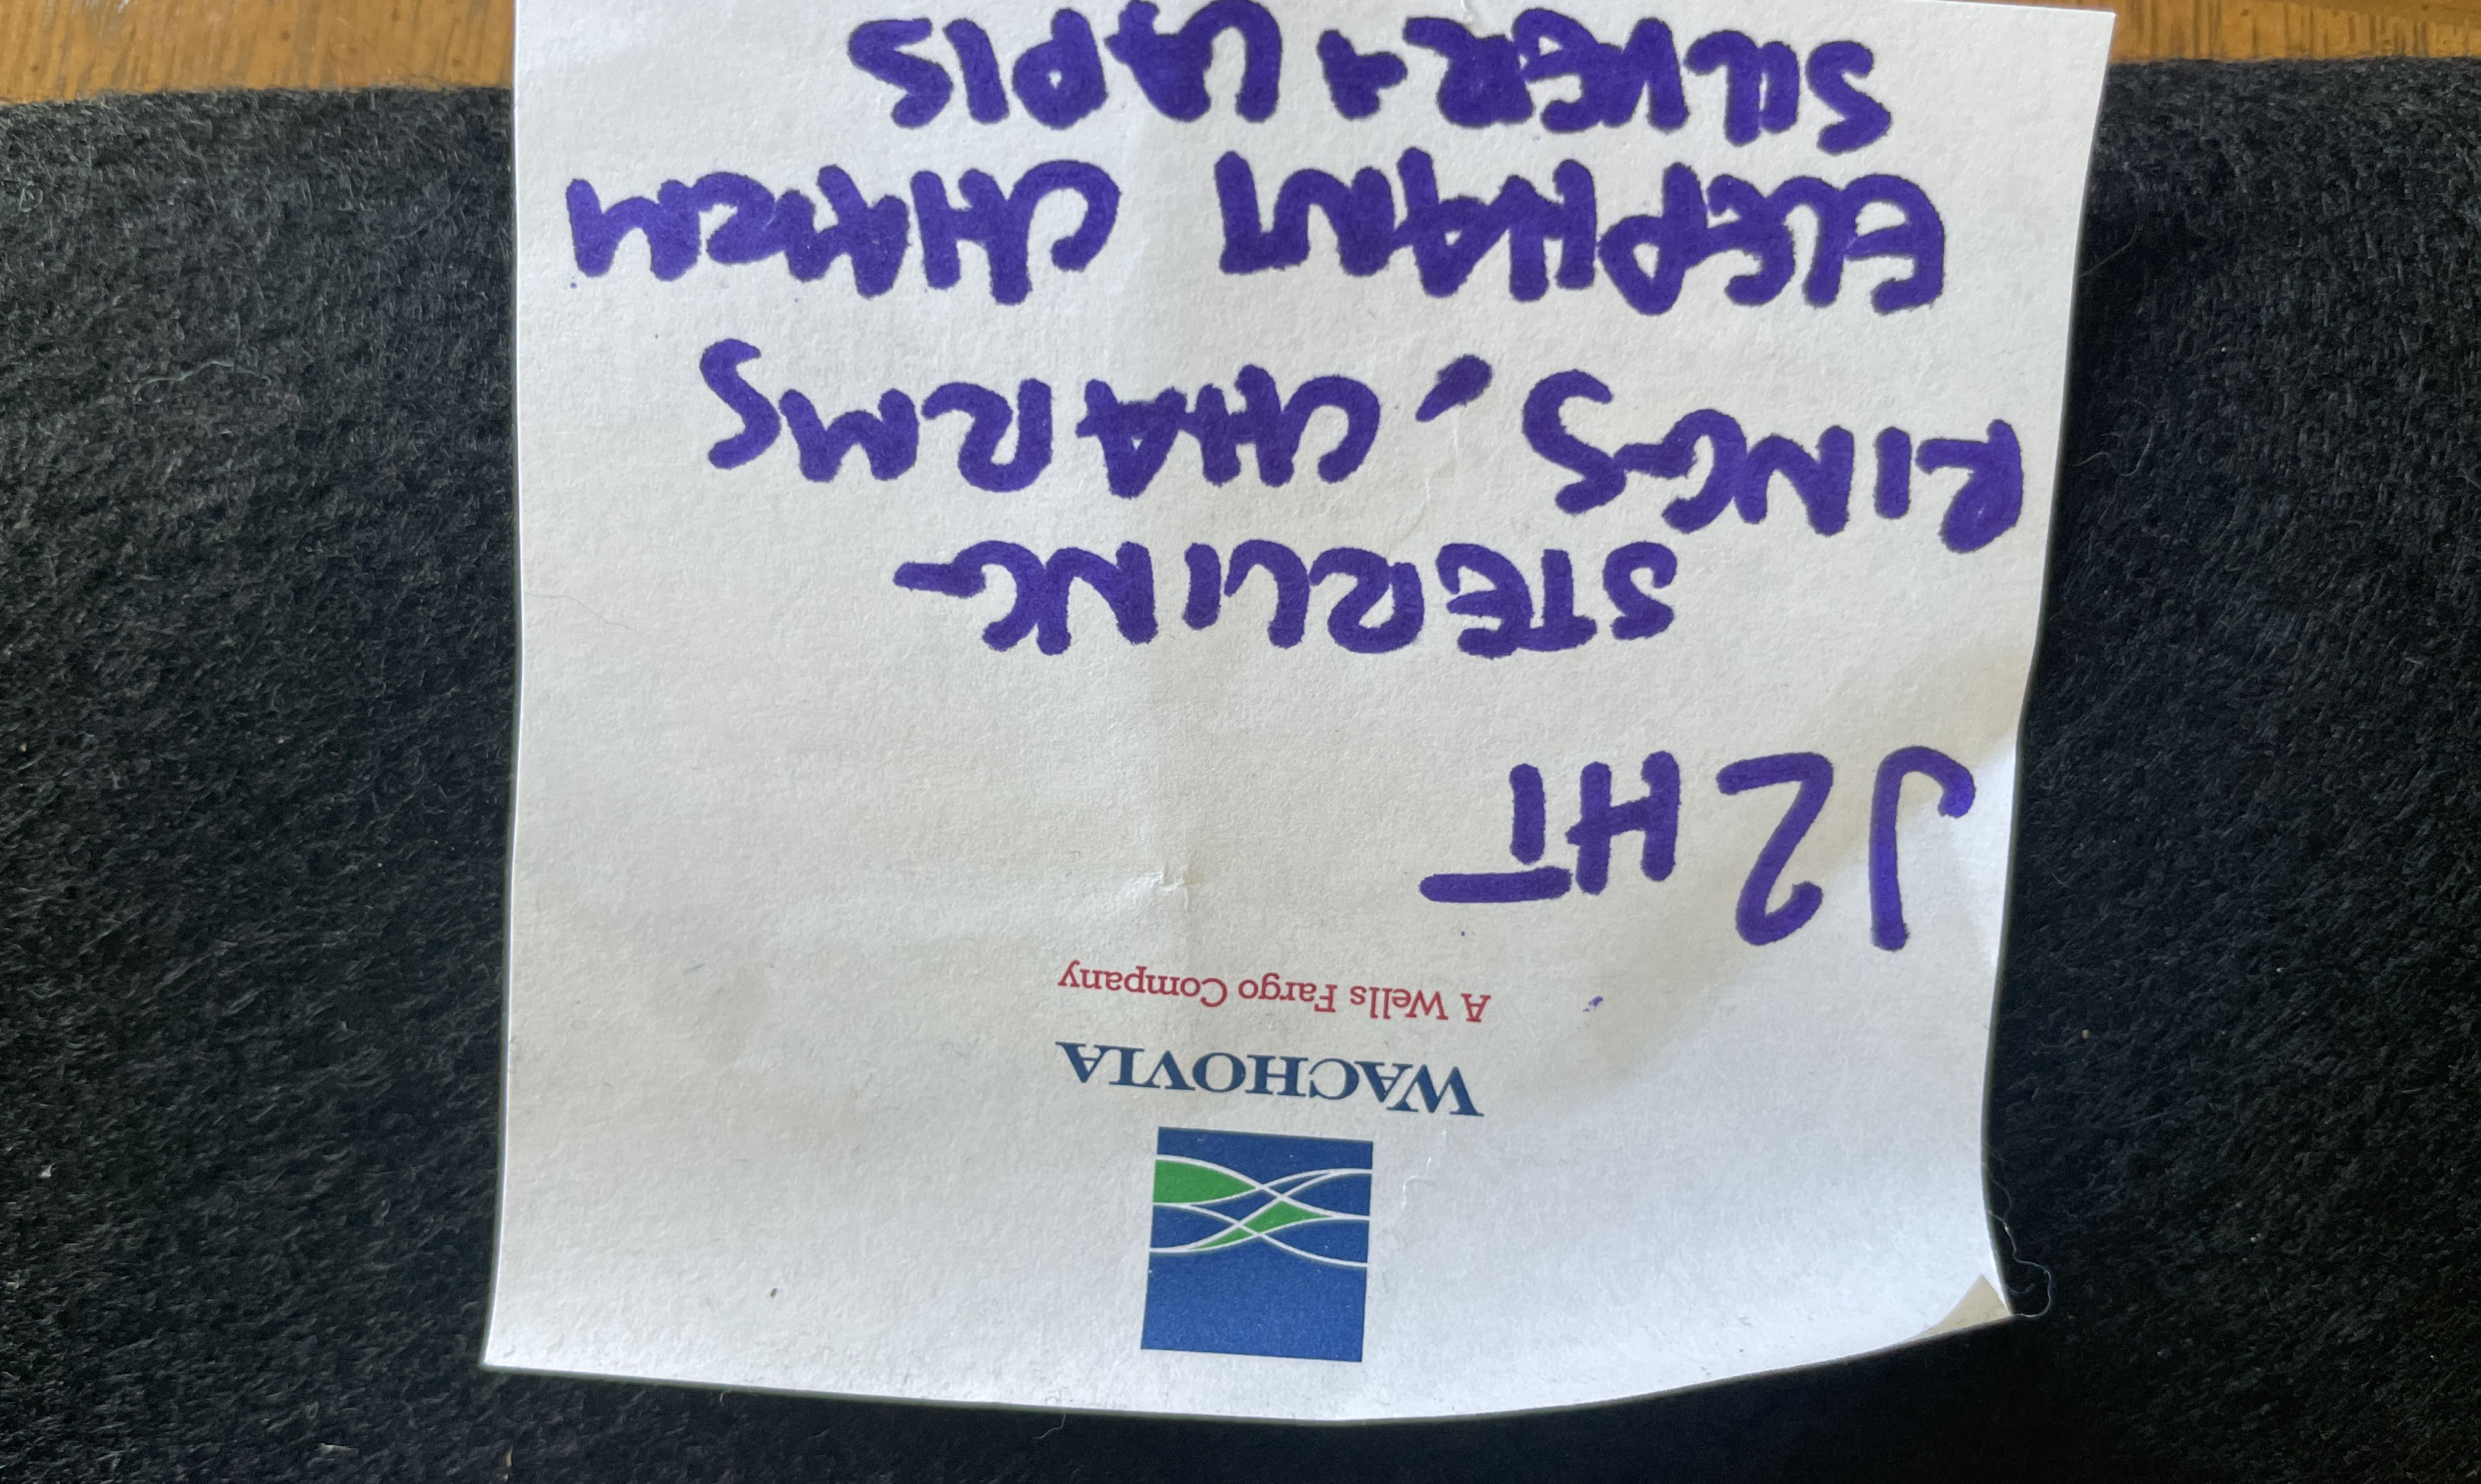 WACHOVIA
A Wells Fargo Company
J2HT
STERLING
RINGS, CHARMS
ELEPHANT CHARM
SILVER + LAPIS